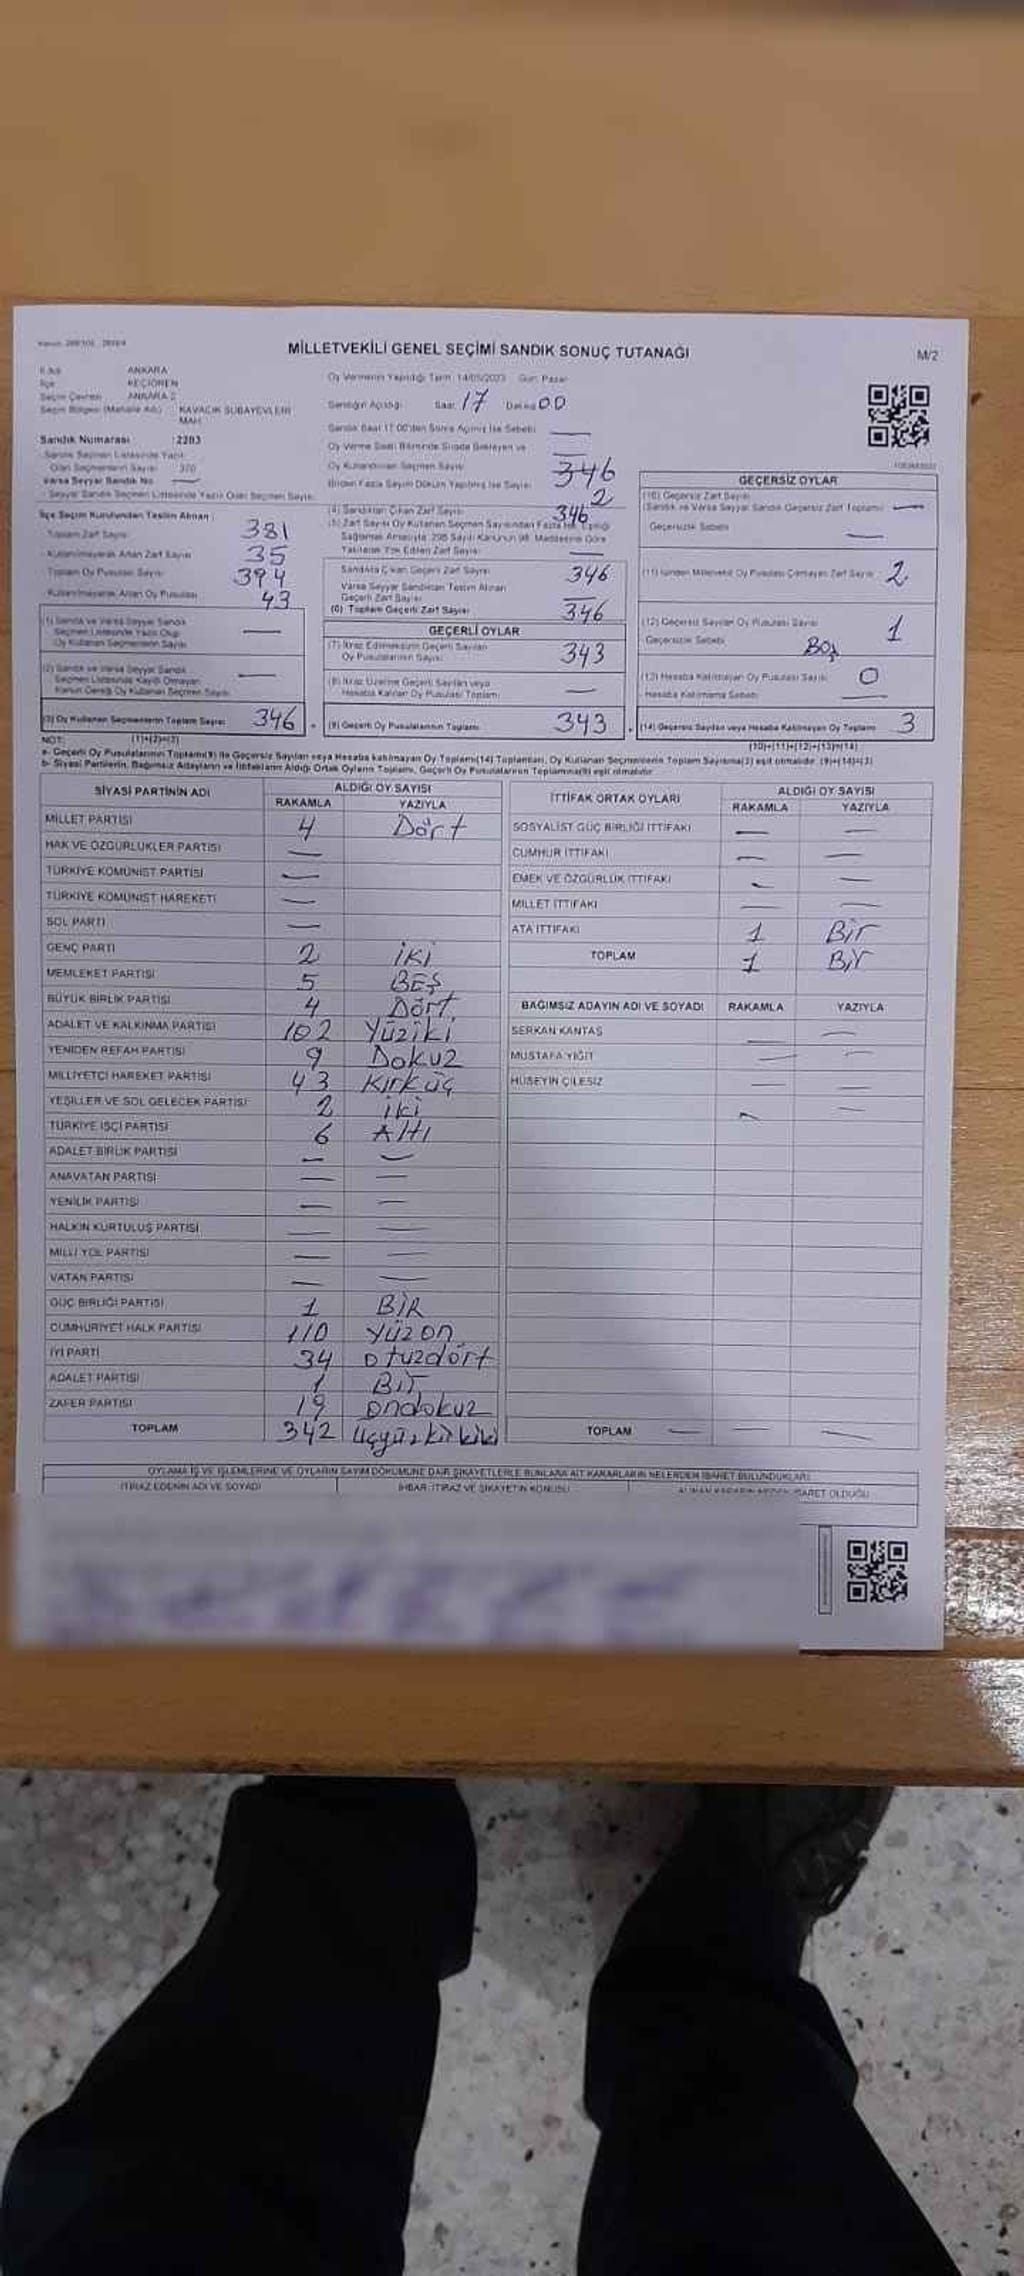 MİLLETVEKİLİ GENEL SEÇİMİ SANDIK SONUÇ TUTANAĞI
M/2
ANKARA
İlçe KEÇİÖREN
Seçim Çevresi ANKARA 2
Seçim Bölgesi (Mahalle Adı) KAVACIK SUBAYEVLERİ MAH.
Sandık Numarası : 2283
Sandık Seçmen Listesinde Yazılı
Olan Seçmenlerin Sayısı 370
Varsa Seyyar Sandık No —
- Seyyar Sandık Seçmen Listesinde Yazılı Olan Seçmen Sayısı:
Oy Vermenin Yapıldığı Tarih: 14/05/2023 Gün: Pazar
Sandığın Açıldığı Saat 17 Dakika 00
Sandık Saat 17.00'den Sonra Açılmış İse Sebebi: —
Oy Verme Saati Bitiminde Sırada Bekleyen ve
Oy Kullandırılan Seçmen Sayısı —
346
Birden Fazla Sayım Döküm Yapılmış İse Sayısı: 2
(4) Sandıktan Çıkan Zarf Sayısı 346
(5) Zarf Sayısı Oy Kullanan Seçmen Sayısından Fazla İse, Eşitliği
Sağlamak Amacıyla, 298 Sayılı Kanunun 98. Maddesine Göre
Yakılarak Yok Edilen Zarf Sayısı —
İlçe Seçim Kurulundan Teslim Alınan :
Toplam Zarf Sayısı 381
- Kullanılmayarak Artan Zarf Sayısı 35
- Toplam Oy Pusulası Sayısı 394
- Kullanılmayarak Artan Oy Pusulası 43
(1) Sandık ve Varsa Seyyar Sandık
Seçmen Listesinde Yazılı Olup
Oy Kullanan Seçmenlerin Sayısı —
(2) Sandık ve Varsa Seyyar Sandık
Seçmen Listesinde Kayıtlı Olmayan
Kanun Gereği Oy Kullanan Seçmen Sayısı —
(3) Oy Kullanan Seçmenlerin Toplam Sayısı 346
(1)+(2)=(3)
Sandıkta Çıkan Geçerli Zarf Sayısı 346
Varsa Seyyar Sandıktan Teslim Alınan
Geçerli Zarf Sayısı —
(6) Toplam Geçerli Zarf Sayısı 346
GEÇERLİ OYLAR
(7) İtiraz Edilmeksizin Geçerli Sayılan
Oy Pusulalarının Sayısı 343
(8) İtiraz Üzerine Geçerli Sayılan veya
Hesaba Katılan Oy Pusulası Toplamı —
(9) Geçerli Oy Pusulalarının Toplamı 343
GEÇERSİZ OYLAR
(10) Geçersiz Zarf Sayısı
(Sandık ve Varsa Seyyar Sandık Geçersiz Zarf Toplamı) —
Geçersizlik Sebebi —
(11) İçinden Milletvekili Oy Pusulası Çıkmayan Zarf Sayısı 2
(12) Geçersiz Sayılan Oy Pusulası Sayısı 1
Geçersizlik Sebebi Boş
(13) Hesaba Katılmayan Oy Pusulası Sayısı 0
- Hesaba Katılmama Sebebi —
(14) Geçersiz Sayılan veya Hesaba Katılmayan Oy Toplamı 3
(10)+(11)+(12)+(13)=(14)
NOT:
a- Geçerli Oy Pusulalarının Toplamı(9) ile Geçersiz Sayılan veya Hesaba katılmayan Oy Toplamı(14) Toplamları, Oy Kullanan Seçmenlerin Toplam Sayısına(3) eşit olmalıdır. (9)+(14)=(3)
b- Siyasi Partilerin, Bağımsız Adayların ve İttifakların Aldığı Ortak Oyların Toplamı, Geçerli Oy Pusulalarının Toplamına(9) eşit olmalıdır.
SİYASİ PARTİNİN ADI ALDIĞI OY SAYISI
RAKAMLA YAZIYLA
MİLLET PARTİSİ 4 Dört
HAK VE ÖZGÜRLÜKLER PARTİSİ —
TÜRKİYE KOMÜNİST PARTİSİ —
TÜRKİYE KOMÜNİST HAREKETİ —
SOL PARTİ —
GENÇ PARTİ 2 İKİ
MEMLEKET PARTİSİ 5 BEŞ
BÜYÜK BİRLİK PARTİSİ 4 Dört
ADALET VE KALKINMA PARTİSİ 102 Yüziki
YENİDEN REFAH PARTİSİ 9 Dokuz
MİLLİYETÇİ HAREKET PARTİSİ 43 Kırküç
YEŞİLLER VE SOL GELECEK PARTİSİ 2 iki
TÜRKİYE İŞÇİ PARTİSİ 6 Altı
ADALET BİRLİK PARTİSİ — —
ANAVATAN PARTİSİ — —
YENİLİK PARTİSİ — —
HALKIN KURTULUŞ PARTİSİ — —
MİLLİ YOL PARTİSİ — —
VATAN PARTİSİ — —
GÜÇ BİRLİĞİ PARTİSİ 1 BİR
CUMHURİYET HALK PARTİSİ 110 Yüzon
İYİ PARTİ 34 otuzdört
ADALET PARTİSİ 1 Bir
ZAFER PARTİSİ 19 ondokuz
TOPLAM 342 üçyüzkırkiki
İTTİFAK ORTAK OYLARI ALDIĞI OY SAYISI
RAKAMLA YAZIYLA
SOSYALİST GÜÇ BİRLİĞİ İTTİFAKI — —
CUMHUR İTTİFAKI — —
EMEK VE ÖZGÜRLÜK İTTİFAKI — —
MİLLET İTTİFAKI — —
ATA İTTİFAKI 1 Bir
TOPLAM 1 Bir
BAĞIMSIZ ADAYIN ADI VE SOYADI RAKAMLA YAZIYLA
SERKAN KANTAŞ — —
MUSTAFA YİĞİT — —
HÜSEYİN ÇİLESİZ — —
— —
TOPLAM — — —
OYLAMA İŞ VE İŞLEMLERİNE VE OYLARIN SAYIM DÖKÜMÜNE DAİR ŞİKAYETLERLE BUNLARA AİT KARARLARIN NELERDEN İBARET BULUNDUKLARI
İTİRAZ EDENİN ADI VE SOYADI İHBAR, İTİRAZ VE ŞİKAYETİN KONUSU